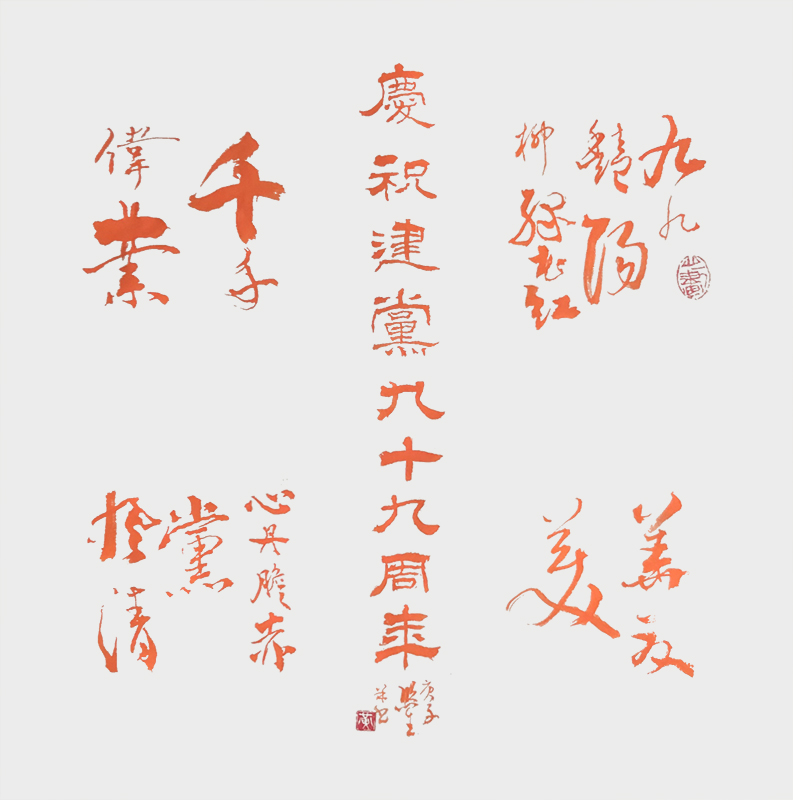 九九
艷陽
柳綠花紅
美
慶祝建黨九十九周年
庚子
千千
偉業
心丹膽赤
黨
風清